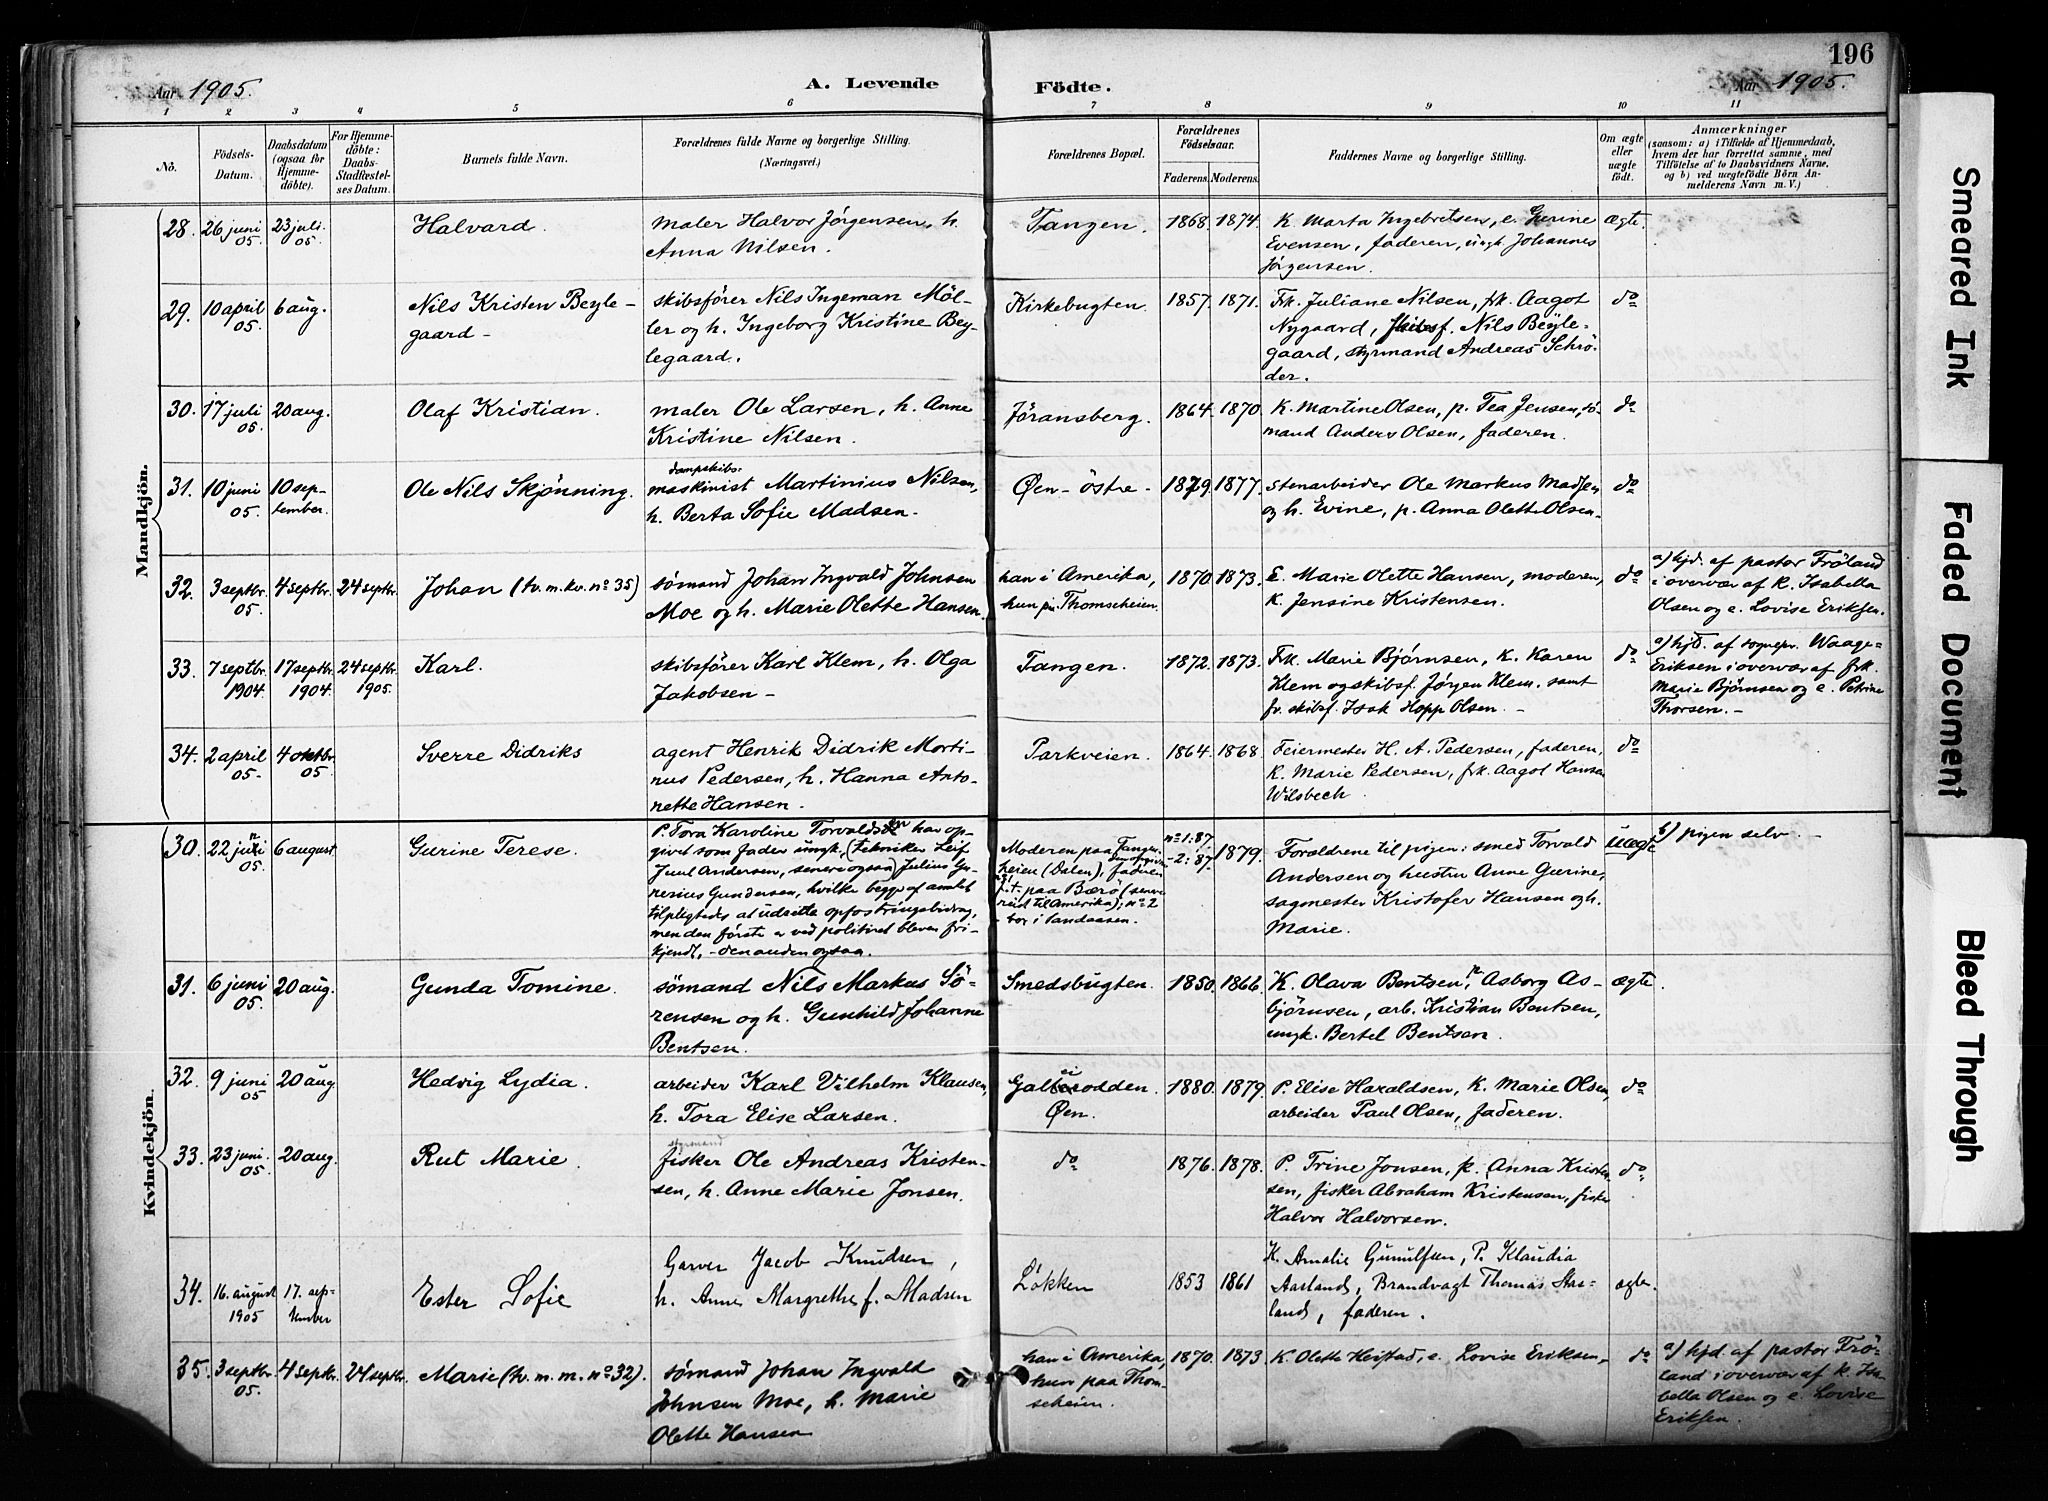 196
Aar 1905.
A. Levende
Födte.
Aar 1905.
1 2 3 4 5 6 7 8 9 10 11
No.
Födsels-
Datum.
Daabsdatum
(ogsaa for
Hjemme-
döbte).
For Hjemme-
döbte:
Daabs-
Stadfæstel-
ses Datum.
Barnets fulde Navn.
Forældrenes fulde Navne og borgerlige Stilling.
(Næringsvei.)
Forældrenes Bopæl.
Forældrenes
Födselsaar.
Faderens. Moderens.
Faddernes Navne og borgerlige Stilling.
Om ægte
eller
uægte
födt.
Anmærkninger
(saasom: a) i Tilfælde af Hjemmedaab,
hvem der har forrettet samme, med
Tilföielse af to Daabsvidners Navne,
og b) ved uægtefödte Börn An-
melderens Navn m. V.)
Mandkjön.
28. 26 juni 05. 23 juli 05. Halvard. maler Halvor Jørgensen, h.
Anna Nilsen.
Tangen. 1868. 1874. K. Marta Ingebretsen, e. Gurine
Evensen, faderen, ungk. Johannes
Jørgensen.
ægte.
29. 10 april 05. 6 aug. Nils Kristen Beyle-
gaard -
skibsfører Nils Ingeman Möl-
ler og h. Ingeborg Kristine Bey-
legaard.
Kirkebugten. 1857. 1871. Frk. Juliane Nilsen, frk. Aagot
Nygaard, skibsf. Nils Beyle-
gaard, styrmand Andreas Schrö-
der.
do
30. 17 juli 05. 20 aug. Olaf Kristian. maler Ole Larsen, h. Anne
Kristine Nilsen.
Jöransberg. 1864. 1870. K. Martine Olsen, p. Tea Jensen, sø-
mand Anders Olsen, faderen.
do
31. 10 juni 05. 10 sep-
tember.
Ole Nils Skjønning. dampskibs-
maskinist Martinius Nilsen,
h. Berta Sofie Madsen.
Øen - östre - 1879. 1877. stenarbeider Ole Markus Madsen
og h. Evine, p. Anna Olette Olsen.
do
32. 3 septbr. 05. 4 septbr. 24 septbr. Johan (tv. m. kv. no 35) sømand Johan Ingvald Johnsen
Moe og h. Marie Olette Hansen.
han i Amerika,
hun på Thomscheien.
1870. 1873. E. Marie Olette Hansen, moderen,
K. Jensine Kristensen.
do
a) hjd. af pastor Frøland
i overvær af K. Isabella
Olsen og e. Lovise Eriksen.
33. 7 septbr. 1904. 17 septbr. 1904. 24 septbr. 1905. Karl. skibsfører Karl Klem, h. Olga
Jakobsen -
Tangen. 1872. 1873. Frk. Marie Bjørnsen, K. Karen
Klem og skibsf. Jørgen Klem. samt
fv. skibsf. Isak Hopp Olsen. -
do
a) hjd. af sognepr. Waage-
Eriksen i overvær af frk.
Marie Bjørnsen og e. Petrine
Thorsen. -
34. 2 april 05. 4 oktbr. 05 Sverre Didriks agent Henrik Didrik Morti-
nus Pedersen, h. Hanna Anto-
nette Hansen.
Parkveien. 1864. 1868 Feiermester H. A. Pedersen, faderen,
K. Marie Pedersen, frk. Aagot Hansen
Wilsbech.
do
Kvindekjön.
30. 22 juni 05. 6 august Gurine Terese. P. Tora Karoline Torvaldsen har op-
givet som fader ungk. (tekniker Leif
Juul Andersen, senere ogsaa) Julius Gu-
nerius Gundersen, hvilke begge af amtet
tilpligtedes at udrette opfostringsbidrag,
men den første er ved politiret bleven fri-
kjendt, - den anden ogsaa.
Moderen paa Tangen-
heien (Dalen), den opgivne fader no 1
f.t. paa Bærö (senere
reist til Amerika); no 2
bor i Sandaasen.
no 1: 87. - 2: 87. 1879. Forældrene til pigen: smed Torvald
Andersen og hustru Anne Gurine,
sagmester Kristofer Hansen og h.
Marie.
uægte
b) pigen selv. -
31. 6 juni 05. 20 aug. Gunda Tomine. sømand Nils Markus Sö-
rensen og h. Gunhild Johanne
Bentsen.
Smedsbugten. 1850. 1866. K. Olava Bentsen, p. Asborg As-
björnsen, arb. Kristian Bentsen,
ungk. Bertel Bentsen.
ægte.
32. 9 juni 05 20 aug Hedvig Lydia. arbeider Karl Vilhelm Klausen,
h. Tora Elise Larsen.
Galteodden.
Øen.
1880. 1879. P. Elise Haraldsen, K. Marie Olsen,
arbeider Paul Olsen, faderen.
do
33. 23 juni 05. 20 aug. Rut Marie. styrmand
fisker Ole Andreas Kristen-
sen, h. Anne Marie Jonsen.
do 1876. 1878. P. Trine Jonsen, p. Anna Kristen-
sen, fisker Abraham Kristensen, fisker
Halvor Halvorsen.
do
34. 16. august 1905 17. sep-
tember
Ester Sofie Garver Jacob Knudsen,
h. Anne Margrethe f. Madsen
Løkken 1853 1861 K. Amalie Gunulfsen, P. Klaudia
Aasland, Brandvagt Thomas Aas-
land, faderen.
ægte.
35. 3 septbr. 05. 4 septbr. 24 septbr. Marie (tv. m. m. no 32). sømand Johan Ingvald
Johnsen Moe, h. Marie
Olette Hansen
han i Amerika,
hun paa Thom-
scheien.
1870. 1873 K. Olette Heistad, e. Lovise Eriksen,
do
a) hjd. af pastor Frö-
land i overvær af K. Isa-
bella Olsen og e. Lovise
Eriksen.
Smeared Ink
Faded Document
Bleed Through